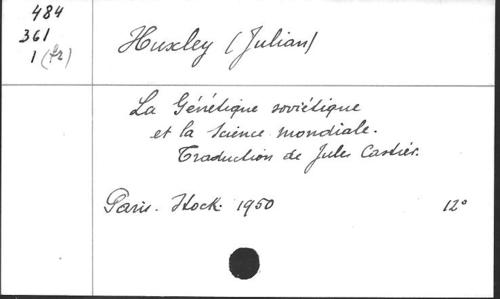 484
361
1 (fr)
Huxley (Julian)
La Génétique soviétique
et la Science mondiale.
Traduction de Jules Castier.
Paris. Stock. 1950 12°